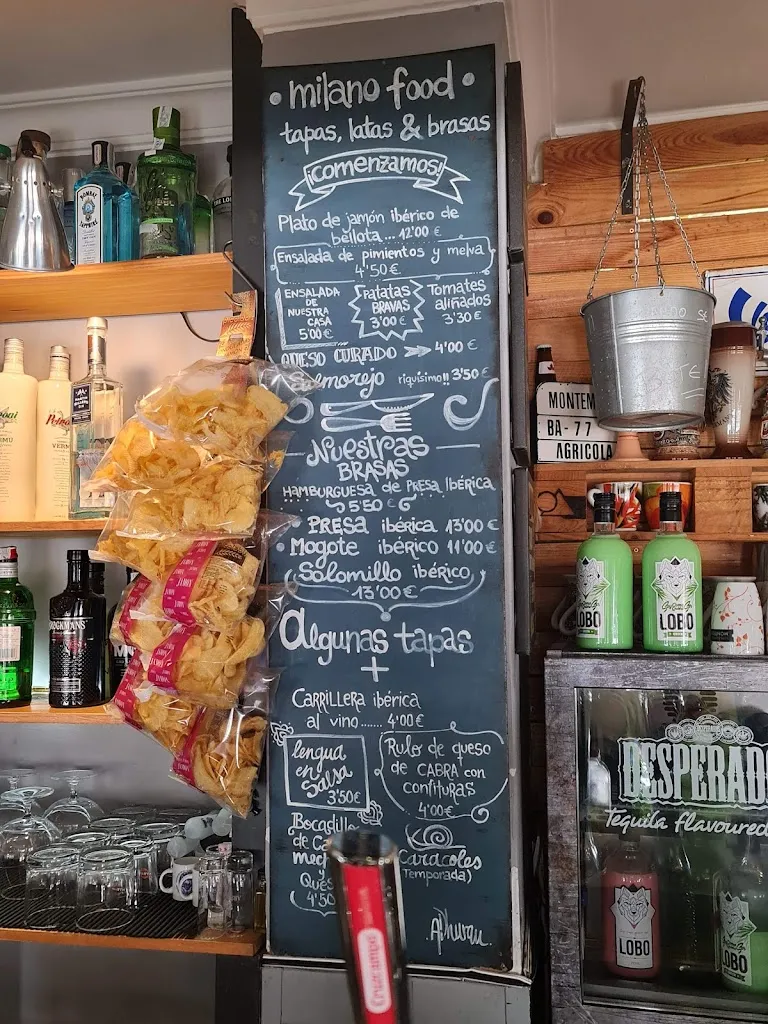 • milano food •
tapas, latas & brasas
¡comenzamos!
Plato de jamón ibérico de
bellota... 12'00 €
Ensalada de pimientos y melva
4'50€
ENSALADA
DE
NUESTRA
CASA
5'00€
PATATAS
BRAVAS
3'00€
Tomates
aliñados
3'30€
QUESO CURADO 4'00 €
riquísimo!! 3'50€
Nuestras
BRASAS
HAMBURGUESA de PRESA IBÉRICA
5'80€
PRESA ibérica 13'00€
• Mogote ibérico 11'00€
Solomillo ibérico
13'00€
algunas tapas
+
CARRILLERA ibérica
al vino....... 4'00€
lengua
en
salsa
3'50€
Rulo de queso
de CABRA con
confituras
4'00€
Bocadillo
de
y
4'50
caracoles
(Temporada)
BOMBAY
SAPPHIRE
BROCKMANS
JAMON
JAMON
Cruzcampo
MONTEM
BA-77
AGRICOLA
LOBO
LOBO
DESPERADO
Tequila flavoured
LOBO
LOBO